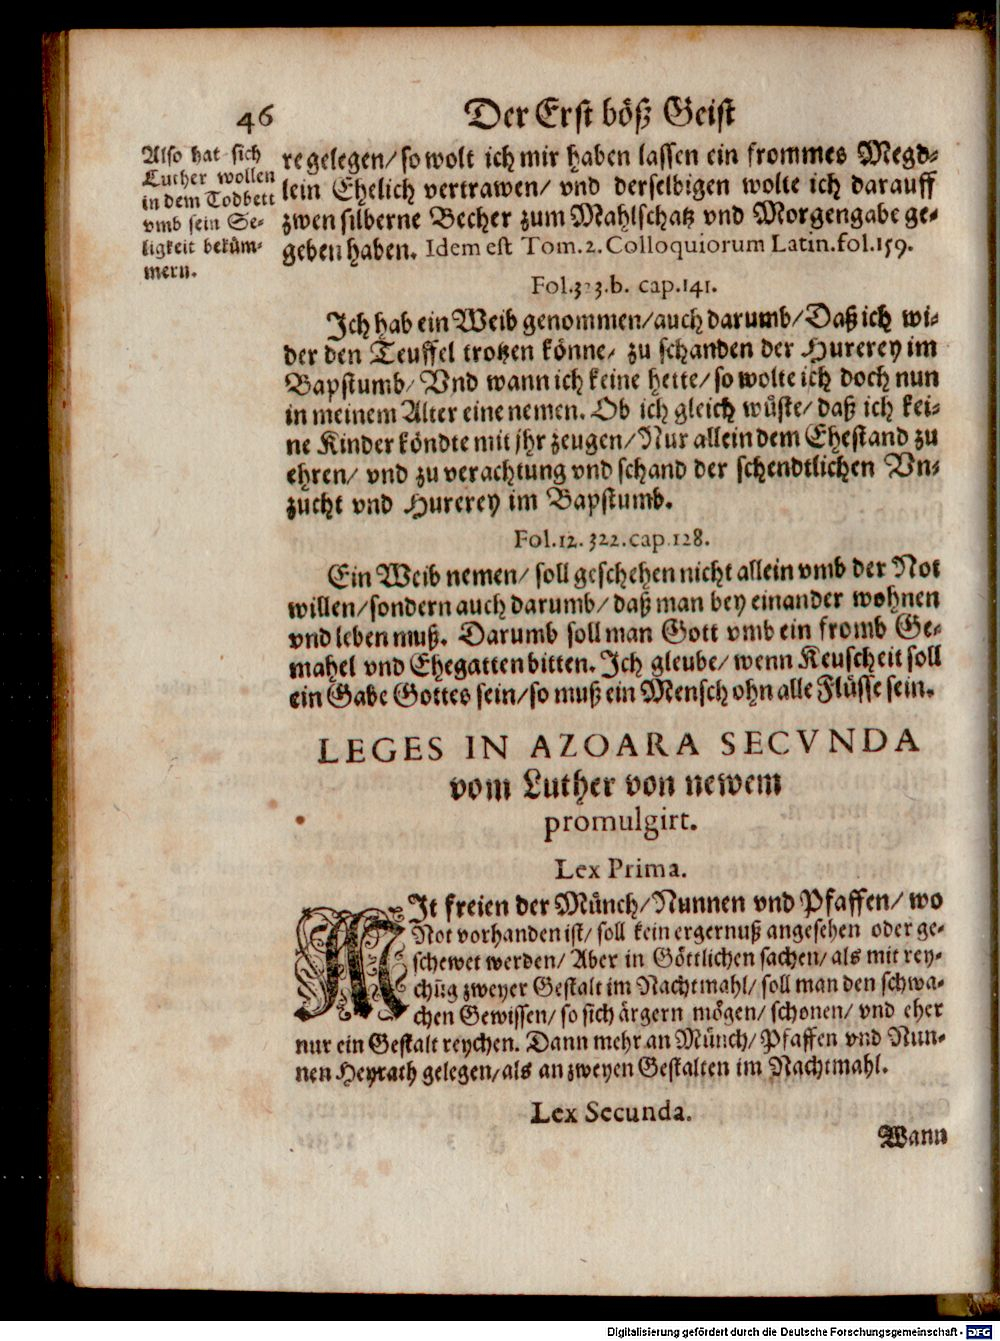 46
Der Erst böß Geist
Also hat sich
Luther wollen
in dem Todbett
vmb sein Se-
ligkeit beküm-
mern.
re gelegen/ so wolt ich mir haben lassen ein frommes Megd-
lein Ehelich vertrawen/ vnd derselbigen wolte ich darauff
zwen silberne Becher zum Mahlschatz vnd Morgengabe ge-
geben haben. Idem est Tom.2. Colloquiorum Latin. fol.159.
Fol.323.b. cap.141.
Ich hab ein Weib genommen/ auch darumb/ Daß ich wi-
der den Teuffel trotzen könne/ zu schanden der Hurerey im
Bapstumb/ Vnd wann ich keine hette/ so wolte ich doch nun
in meinem Alter eine nemen. Ob ich gleich wüste/ daß ich kei-
ne Kinder köndte mit jhr zeugen/ Nur allein dem Ehestand zu
ehren/ vnd zu verachtung vnd schand der schendtlichen Vn-
zucht vnd Hurerey im Bapstumb.
Fol.12. 322. cap.128.
Ein Weib nemen/ soll geschehen nicht allein vmb der Not
willen/ sondern auch darumb/ daß man bey einander wohnen
vnd leben muß. Darumb soll man Gott vmb ein fromb Ge-
mahel vnd Ehegatten bitten. Ich gleube/ wenn Keuscheit soll
ein Gabe Gottes sein/ so muß ein Mensch ohn alle Flüsse sein.
LEGES IN AZOARA SECVNDA
vom Luther von newem
promulgirt.
Lex Prima.
MIt freien der Münch/ Nunnen vnd Pfaffen/ wo
Not vorhanden ist/ soll kein ergernuß angesehen oder ge-
schewet werden/ Aber in Göttlichen sachen/ als mit rey-
chũg zweyer Gestalt im Nachtmahl/ soll man den schwa-
chen Gewissen/ so sich ärgern mögen/ schonen/ vnd eher
nur ein Gestalt reychen. Dann mehr an Münch/ Pfaffen vnd Nun-
nen Heyrath gelegen/ als an zweyen Gestalten im Nachtmahl.
Lex Secunda.
Wann
Digitalisierung gefördert durch die Deutsche Forschungsgemeinschaft - DFG